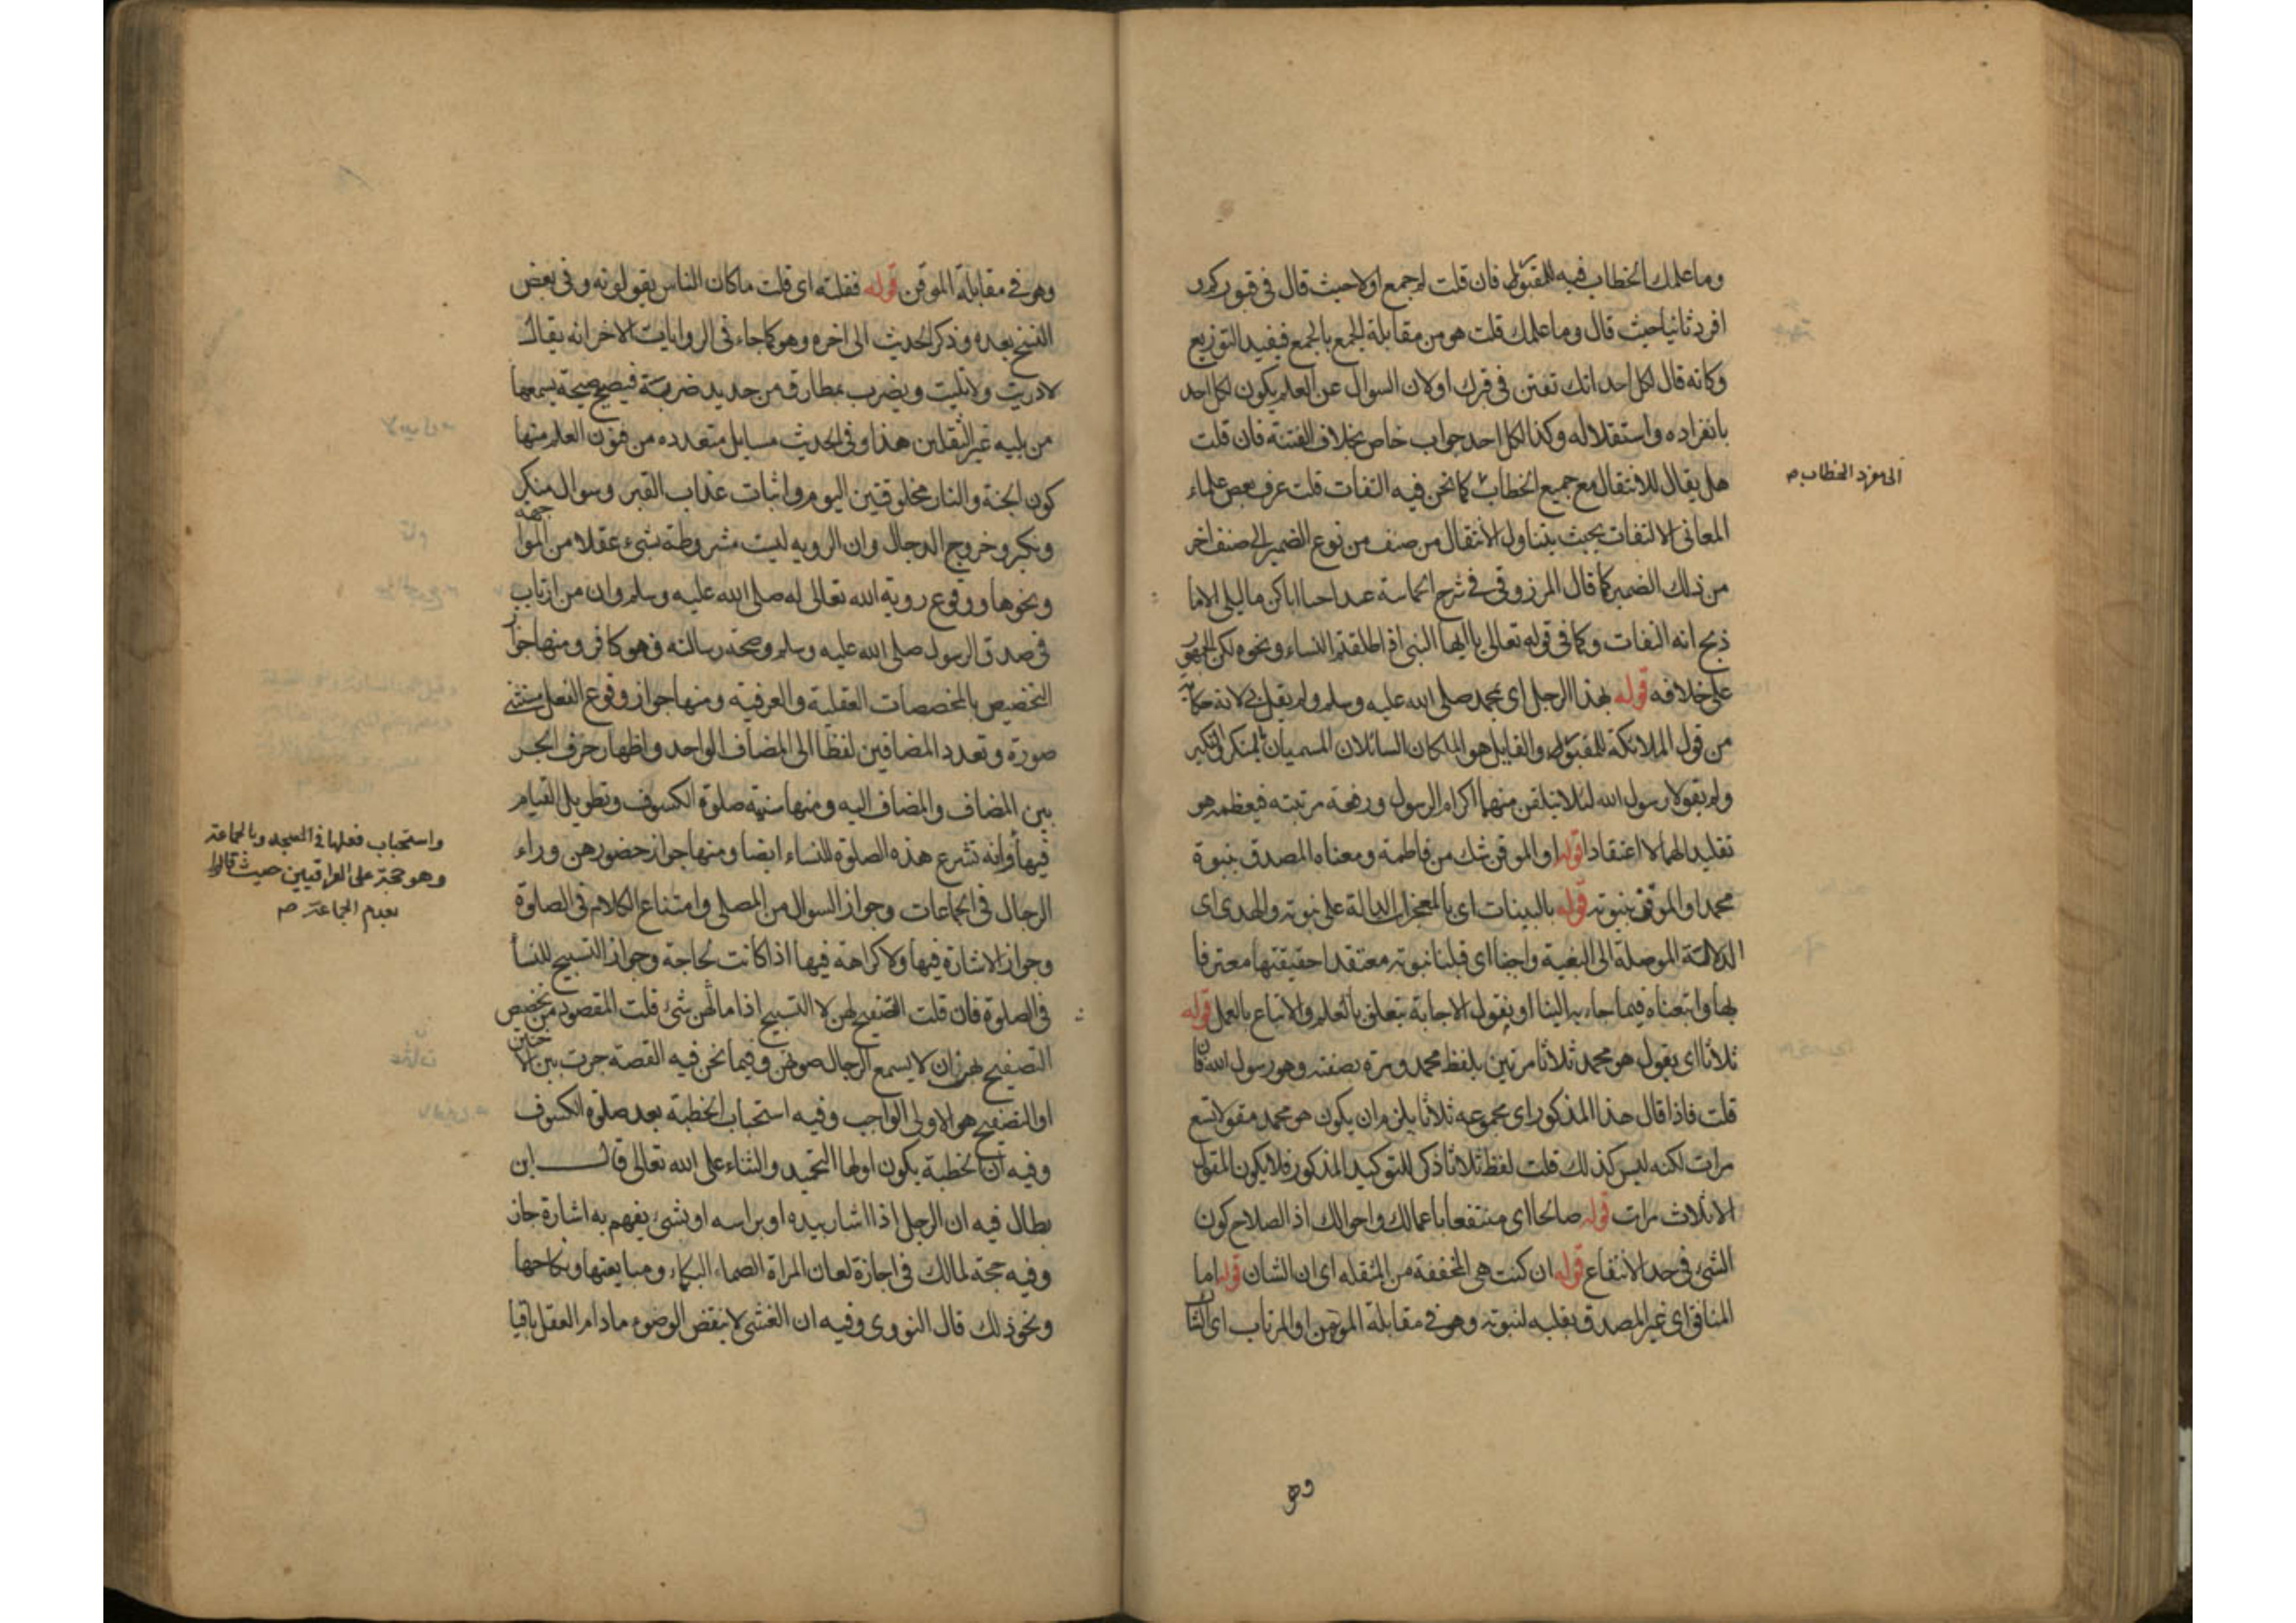 وما علمك الخطاب فيه للمقبور فان قلت لم جمع اولا حيث قال في قبوركم و
افرد ثانيا حيث قال وما علمك قلت هو من مقابلة الجمع بالجمع فيفيد التوزيع
وكانه قال لكل احد انك تفتن في قبرك او لان السوال عن العلم يكون لكل احد
بانفراده واستقلاله وكذا لكل احد جواب خاص بخلاف الفتنة فان قلت
هل يقال للانتقال مع جميع الخطاب كما نحن فيه التفات قلت عرف بعض علماء
الى مفرد الخطاب صح
المعاني الالتفات بحيث يتناول الانتقال من صنف من نوع الضمير الى صنف اخر
من ذلك الضمير كما قال المرزوقي في شرح الحماسة احيا اباكن يا ليلى الاما
ذبح انه التفات وكما في قوله تعالى يا ايها النبي اذا طلقتم النساء ونحوه لكن الجمهور
على خلافه قوله بهذا الرجل اي بمحمد صلى الله عليه وسلم ولم يقل بي لانه حكاية
من قول الملائكة للمقبور والقايل هو الملكان السائلان المسميان بالمنكر والنكير
ولم يقولا رسول الله لئلا يتلقن منهما اكرام الرسول ورفعة مرتبته فيعظمه هو
تقليد الهما لا اعتقادا قوله او الموقن شك من فاطمة ومعناه المصدق بنبوة
محمد او الموقن بنبوته قوله بالبينات اي بالمعجزات الدالة على نبوته والهدى اي
الدلالة الموصلة الى البغية واجبنا اي قبلنا نبوته معتقدا حقيقتها معترفا
بها واتبعناه فيما جاء به الينا او يقول الاجابة يتعلق بالعلم والاتباع بالعمل قوله
ثلاثا اي يقول هو محمد ثلاثا مرتين بلفظ محمد ومرة بصفته وهو رسول الله فان
قلت فاذا قال هذا المذكور اي مجموعه ثلاثا يلزم ان يكون هو محمد مقولا تسع
مرات لكنه ليس كذلك قلت لفظ ثلاثا ذكر للتوكيد المذكور فلا يكون المقول
الا ثلاث مرات قوله صالحا اي منتفعا باعمالك واحوالك اذ الصلاح كون
الشيء في حد الانتفاع قوله ان كنت هي المخففة من المثقله اي ان الشان قوله اما
المنافق اي غير المصدق بقلبه لنبوته وهو في مقابلة المومن او المرتاب اي الشاك
وهو
وهو في مقابلة الموقن قوله فقلته اي قلت ما كان الناس يقولونه وفي بعض
النسخ بعده وذكر الحديث الى اخره وهو كما جاء في الروايات الاخر انه يقال
لا دريت ولا تليت ويضرب بمطارق من حديد ضربة فيصيح صيحة يسمعها
من يليه غير الثقلين هذا وفي الحديث مسايل متعدده من فنون العلم منها
كون الجنة والنار مخلوقتين اليوم واثبات عذاب القبر وسوال منكر
ونكير وخروج الدجال وان الرويه ليست مشروطة بشيء عقلا من المواجهة
ونحوها ووقوع روية الله تعالى له صلى الله عليه وسلم وان من ارتاب
في صدق الرسول صلى الله عليه وسلم وصحة رسالته فهو كافر ومنها جواز
التخصيص بالمخصصات العقلية والعرفيه ومنها جواز وقوع الفعل مستثنى
صورة وتعدد المضافين لفظا الى المضاف الواحد واظهار حرف الجر
بين المضاف والمضاف اليه ومنها سنية صلوة الكسوف وتطويل القيام
واستحباب فعلها في المسجد وبالجماعة
وهو حجة على العراقيين حيث قالوا
بعدم الجماعة صح
فيها وانه تشرع هذه الصلوة للنساء ايضا ومنها جواز حضورهن وراء
الرجال في الجماعات وجواز السوال من المصلي وامتناع الكلام في الصلوة
وجواز الاشارة فيها ولا كراهة فيها اذا كانت لحاجة وجواز التسبيح للنسا
في الصلوة فان قلت التصفيح لهن لا التسبيح اذا نابهن شيء قلت المقصود من تخصيص
التصفيح بهن ان لا يسمع الرجال صوتهن وفيما نحن فيه القصة جرت بين الاختين
او التصفيح هو الاولى الواجب وفيه استحباب الخطبة بعد صلوة الكسوف
وفيه ان الخطبة يكون اولها التحميد والثناء على الله تعالى قال ابن
بطال فيه ان الرجل اذا اشار بيده او براسه او بشيء يفهم به اشارة جاز
وفيه حجة لمالك في اجازة لعان المراة الصماء البكماء ومبايعتها ونكاحها
ونحو ذلك قال النووي وفيه ان الغشي لا ينقض الوضوء ما دام العقل باقيا